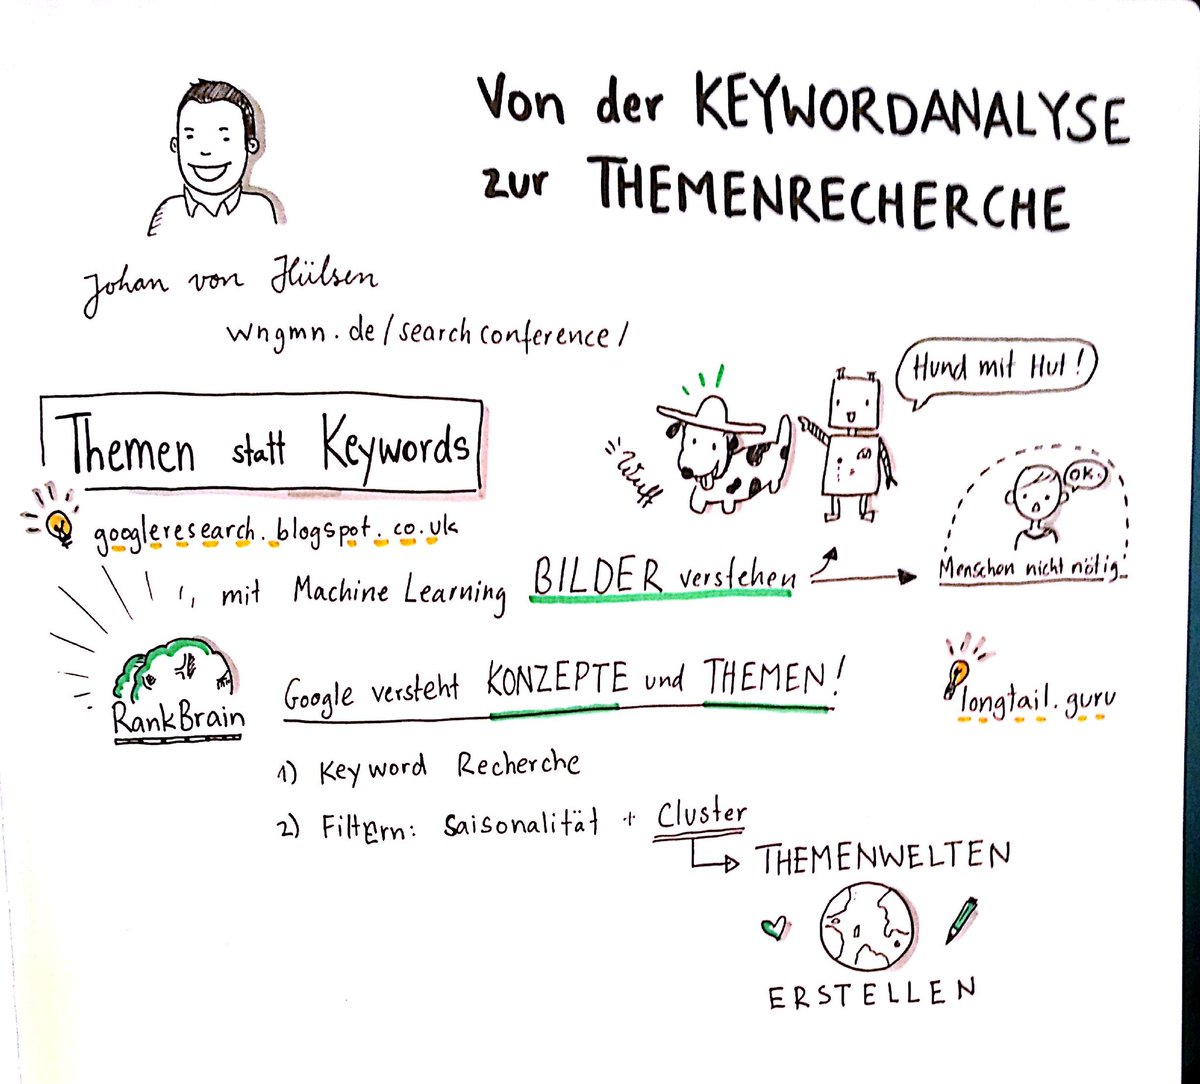 Von der KEYWORDANALYSE
zur THEMENRECHERCHE
Johan von Hülsen
wngmn.de/searchconference/
Hund mit Hut!
Themen statt Keywords
Wuff
OK.
googleresearch.blogspot.co.uk
Menschen nicht nötig!
mit Machine Learning BILDER verstehen
Google versteht KONZEPTE und THEMEN!
RankBrain
longtail.guru
1) Keyword Recherche
2) Filtern: Saisonalität + Cluster
THEMENWELTEN
ERSTELLEN